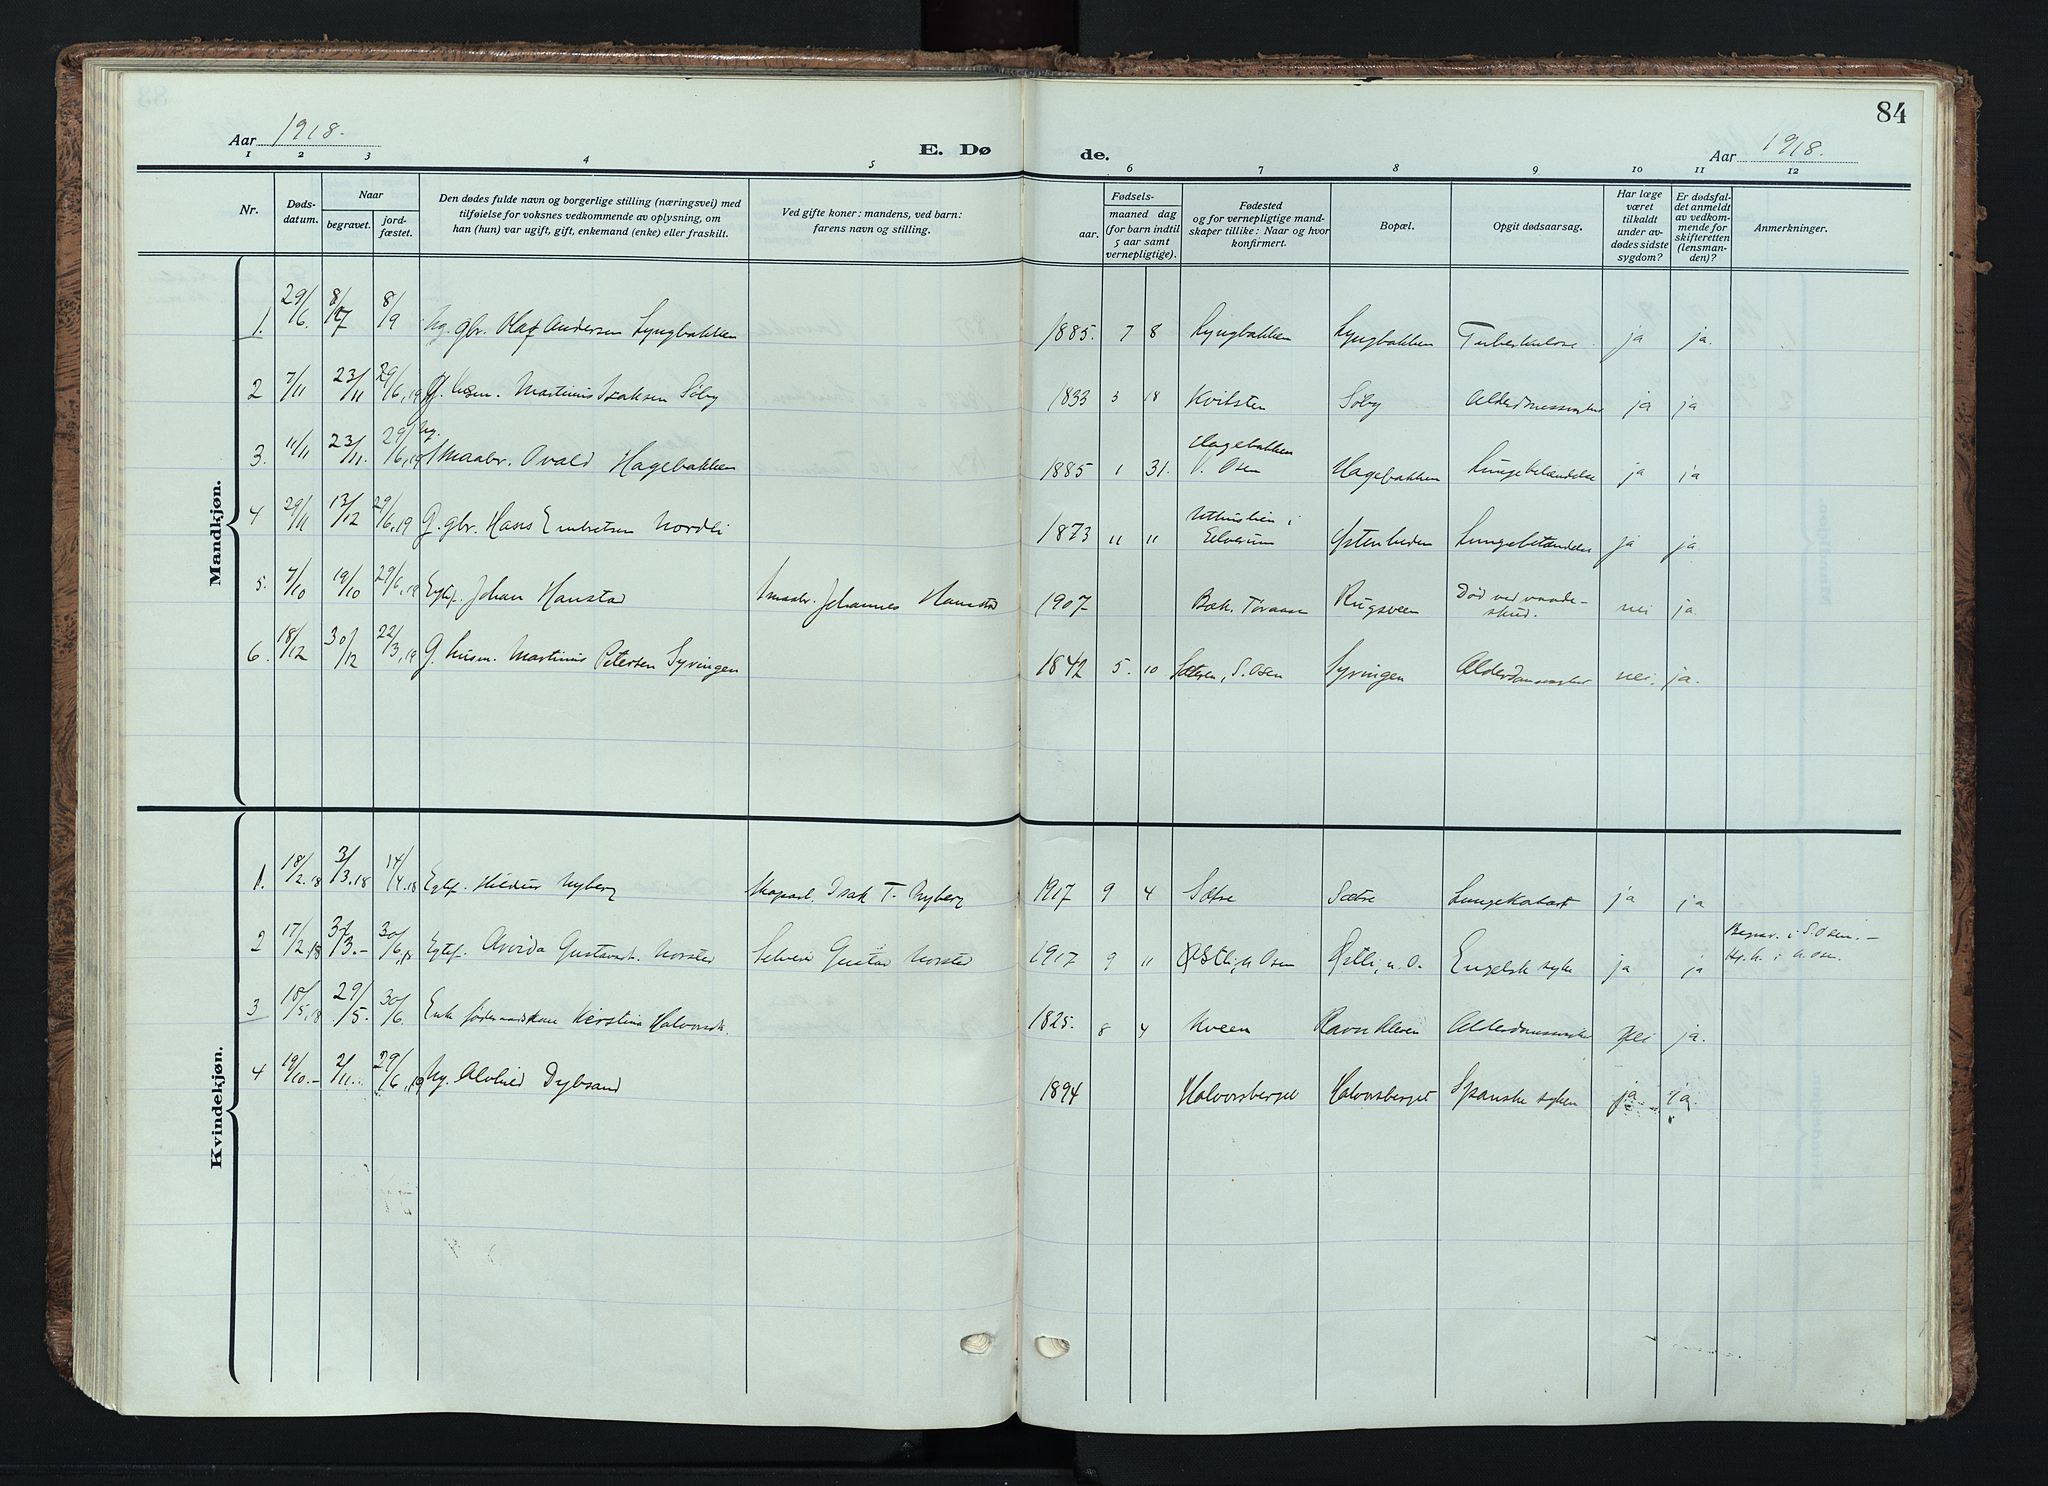 84
Aar 1918.
E. Døde.
Aar 1918.
1 2 3 4 5 6 7 8 9 10 11 12
Nr.
Dødsdatum.
Naar
begravet.
jordfæstet.
Den dødes fulde navn og borgerlige stilling (næringsvei) med
tilføielse for voksnes vedkommende av oplysning, om
han (hun) var ugift, gift, enkemand (enke) eller fraskilt.
Ved gifte koner: mandens, ved barn:
farens navn og stilling.
Fødsels-
aar.
maaned dag
(for barn indtil
5 aar samt
vernepligtige).
Fødested
og for vernepligtige mand-
skaper tillike: Naar og hvor
konfirmert.
Bopæl.
Opgit dødsaarsag.
Har læge
været
tilkaldt
under av-
dødes sidste
sygdom?
Er dødsfal-
det anmeldt
av vedkom-
mende for
skifteretten
(lensman-
den)?
Anmerkninger.
Mandkjøn.
1. 29/6. 8/7 8/9 Ug. gbr. Olaf Andersen Lyngbakken 1885. 7 8 Lyngbakken Lyngbakken Tuberkulose ja ja.
2 7/11 23/11 29/6,19 Martinus Isaksen Søby 1833 3 18 Kvilsten Søby ja ja
3. 11/11 23/11. 29/6,19 Ug. Smaabr. Ovald Hagebakken 1885 1 31. Hagebakken Osen Hagebakken Lungebetændelse ja ja
4 29/11 13/12 29/6,19 G. gbr. Hans Embretsen Nordli 1873 11 11 i Elverum Ystenheden Lungebetændelse ja ja
5. 7/10 19/10 29/6,19 Egtef. Johan Hanstad Smaabr. Johannes Hanstad 1907 Rugsveen Død ved vaade-
skud. nei ja
6. 18/12 30/12 22/3,19 G. husm. Martinus Petersen Syringen 1842 5. 10 S. Osen Syringen nei. ja.
Kvindekjøn.
1. 18/2.18 3/3.18 14/4.18 Egtef. Hildur Nyberg Isak T. Nyberg 1917 9 4 Sætre Sætre ja ja
2 17/2,18 Egtef. Arvida Gustavsd. Norsted Gustav Norsted 1917 9 11 Østli, n. Osen Østli, n. O. Engelsk syke ja ja Begrav. i S. Osen. –
3 18/5,18 29/5. 30/6. Enke Kerstina Halvorsd. 1825. 8 4 Kveen Ravnkleven nei ja.
4 19/10.- 2/11.. 29/6,19 Ug. Alvhild Dybsand 1894 Halvorsberget Halvorsberget Spanske syken ja ja